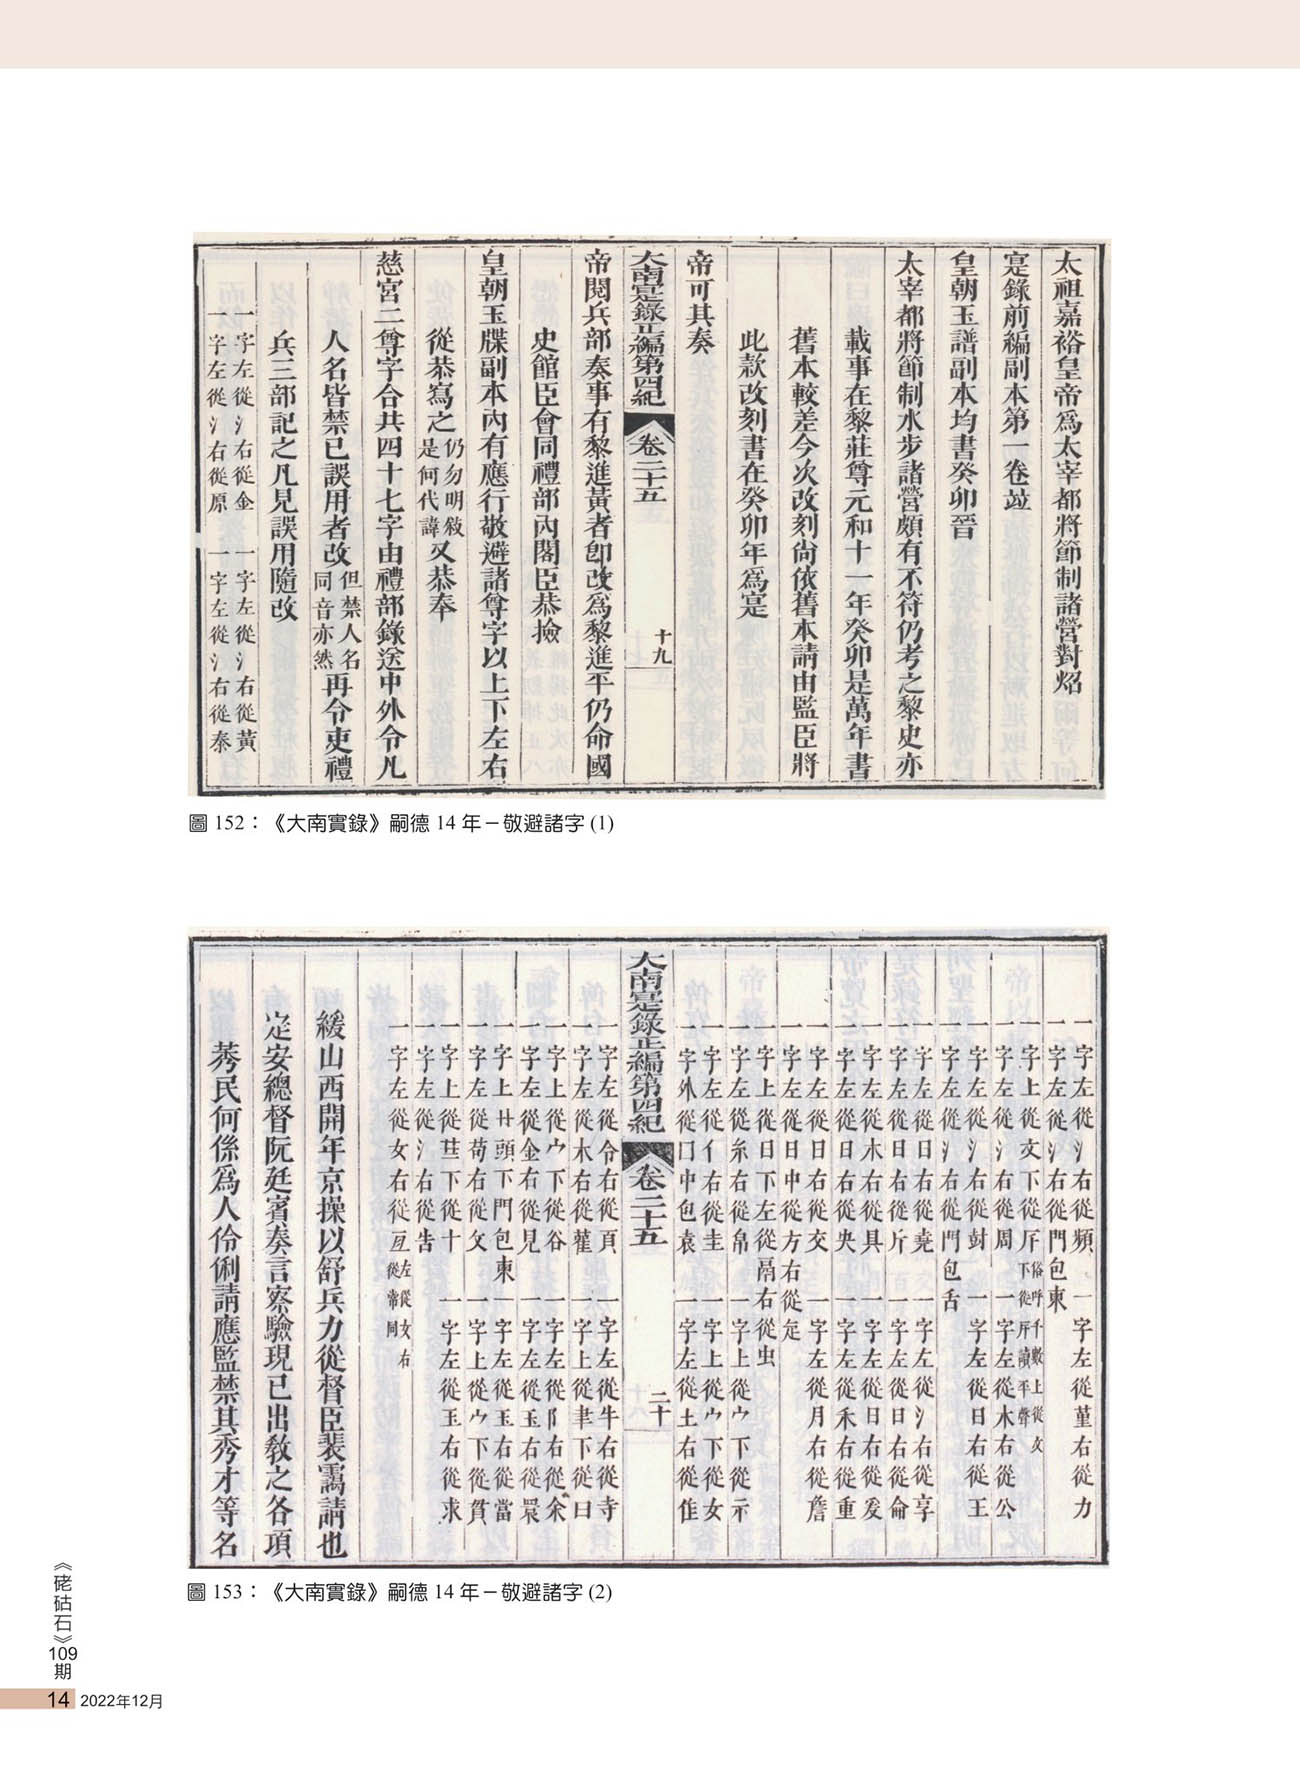 太祖嘉裕皇帝爲太宰都將節制諸營對炤
寔錄前編副本第一卷竝
皇朝玉譜副本均書癸卯晉
太宰都將節制水步諸營頗有不符仍考之黎史亦
載事在黎莊尊元和十一年癸卯是萬年書
舊本較差今次改刻尚依舊本請由監臣將
此款改刻書在癸卯年爲寔
帝可其奏
大南寔錄正編第四紀 卷二十五 十九
帝閱兵部奏事有黎進黃者卽改爲黎進平仍命國
史館臣會同禮部內閣臣恭撿
皇朝玉牒副本內有應行敬避諸尊字以上下左右
從恭寫之仍勿明敘是何代諱又恭奉
慈宮二尊字合共四十七字由禮部錄送中外令凡
人名皆禁已誤用者改但禁人名同音亦然再令吏禮
兵三部記之凡見誤用隨改
一字左從氵右從金 一字左從氵右從黃
一字左從氵右從原 一字左從氵右從泰
圖 152：《大南實錄》嗣德 14 年－敬避諸字 (1)
一字左從氵右從頻 一字左從堇右從力
一字左從氵右從門包東
一字上從文下從厈俗呼千數上從文下從厈讀平聲
一字左從氵右從周 一字左從木右從公
一字左從氵右從封 一字左從日右從王
一字左從氵右從門包舌
一字左從日右從堯 一字左從氵右從享
一字左從日右從斤 一字左從日右從侖
一字左從木右從具 一字左從日右從爰
一字左從日右從央 一字左從禾右從重
一字左從日右從交 一字左從月右從詹
一字左從日中從方右從疋
一字上從日下左從鬲右從虫
一字左從糸右從帛 一字上從宀下從示
一字左從亻右從圭 一字上從宀下從女
一字外從囗中包袁 一字左從土右從隹
大南寔錄正編第四紀 卷二十五 二十
一字左從令右從頁 一字左從牛右從寺
一字左從木右從雚 一字上從聿下從曰
一字上從宀下從谷 一字左從阝右從余
一字左從金右從見 一字左從玉右從睘
一字上廾頭下門包東 一字左從玉右從當
一字左從苟右從文 一字上從宀下從貫
一字上從苎下從十 一字左從玉右從求
一字左從氵右從告
一字左從女右從亘左從女右從常同
緩山西開年京操以舒兵力從督臣裴靄請也
定安總督阮廷賓奏言察驗現已出教之各項
莠民何係爲人伶俐請應監禁其秀才等名
圖 153：《大南實錄》嗣德 14 年－敬避諸字 (2)
《硓𥑮石》109期
14 2022年12月